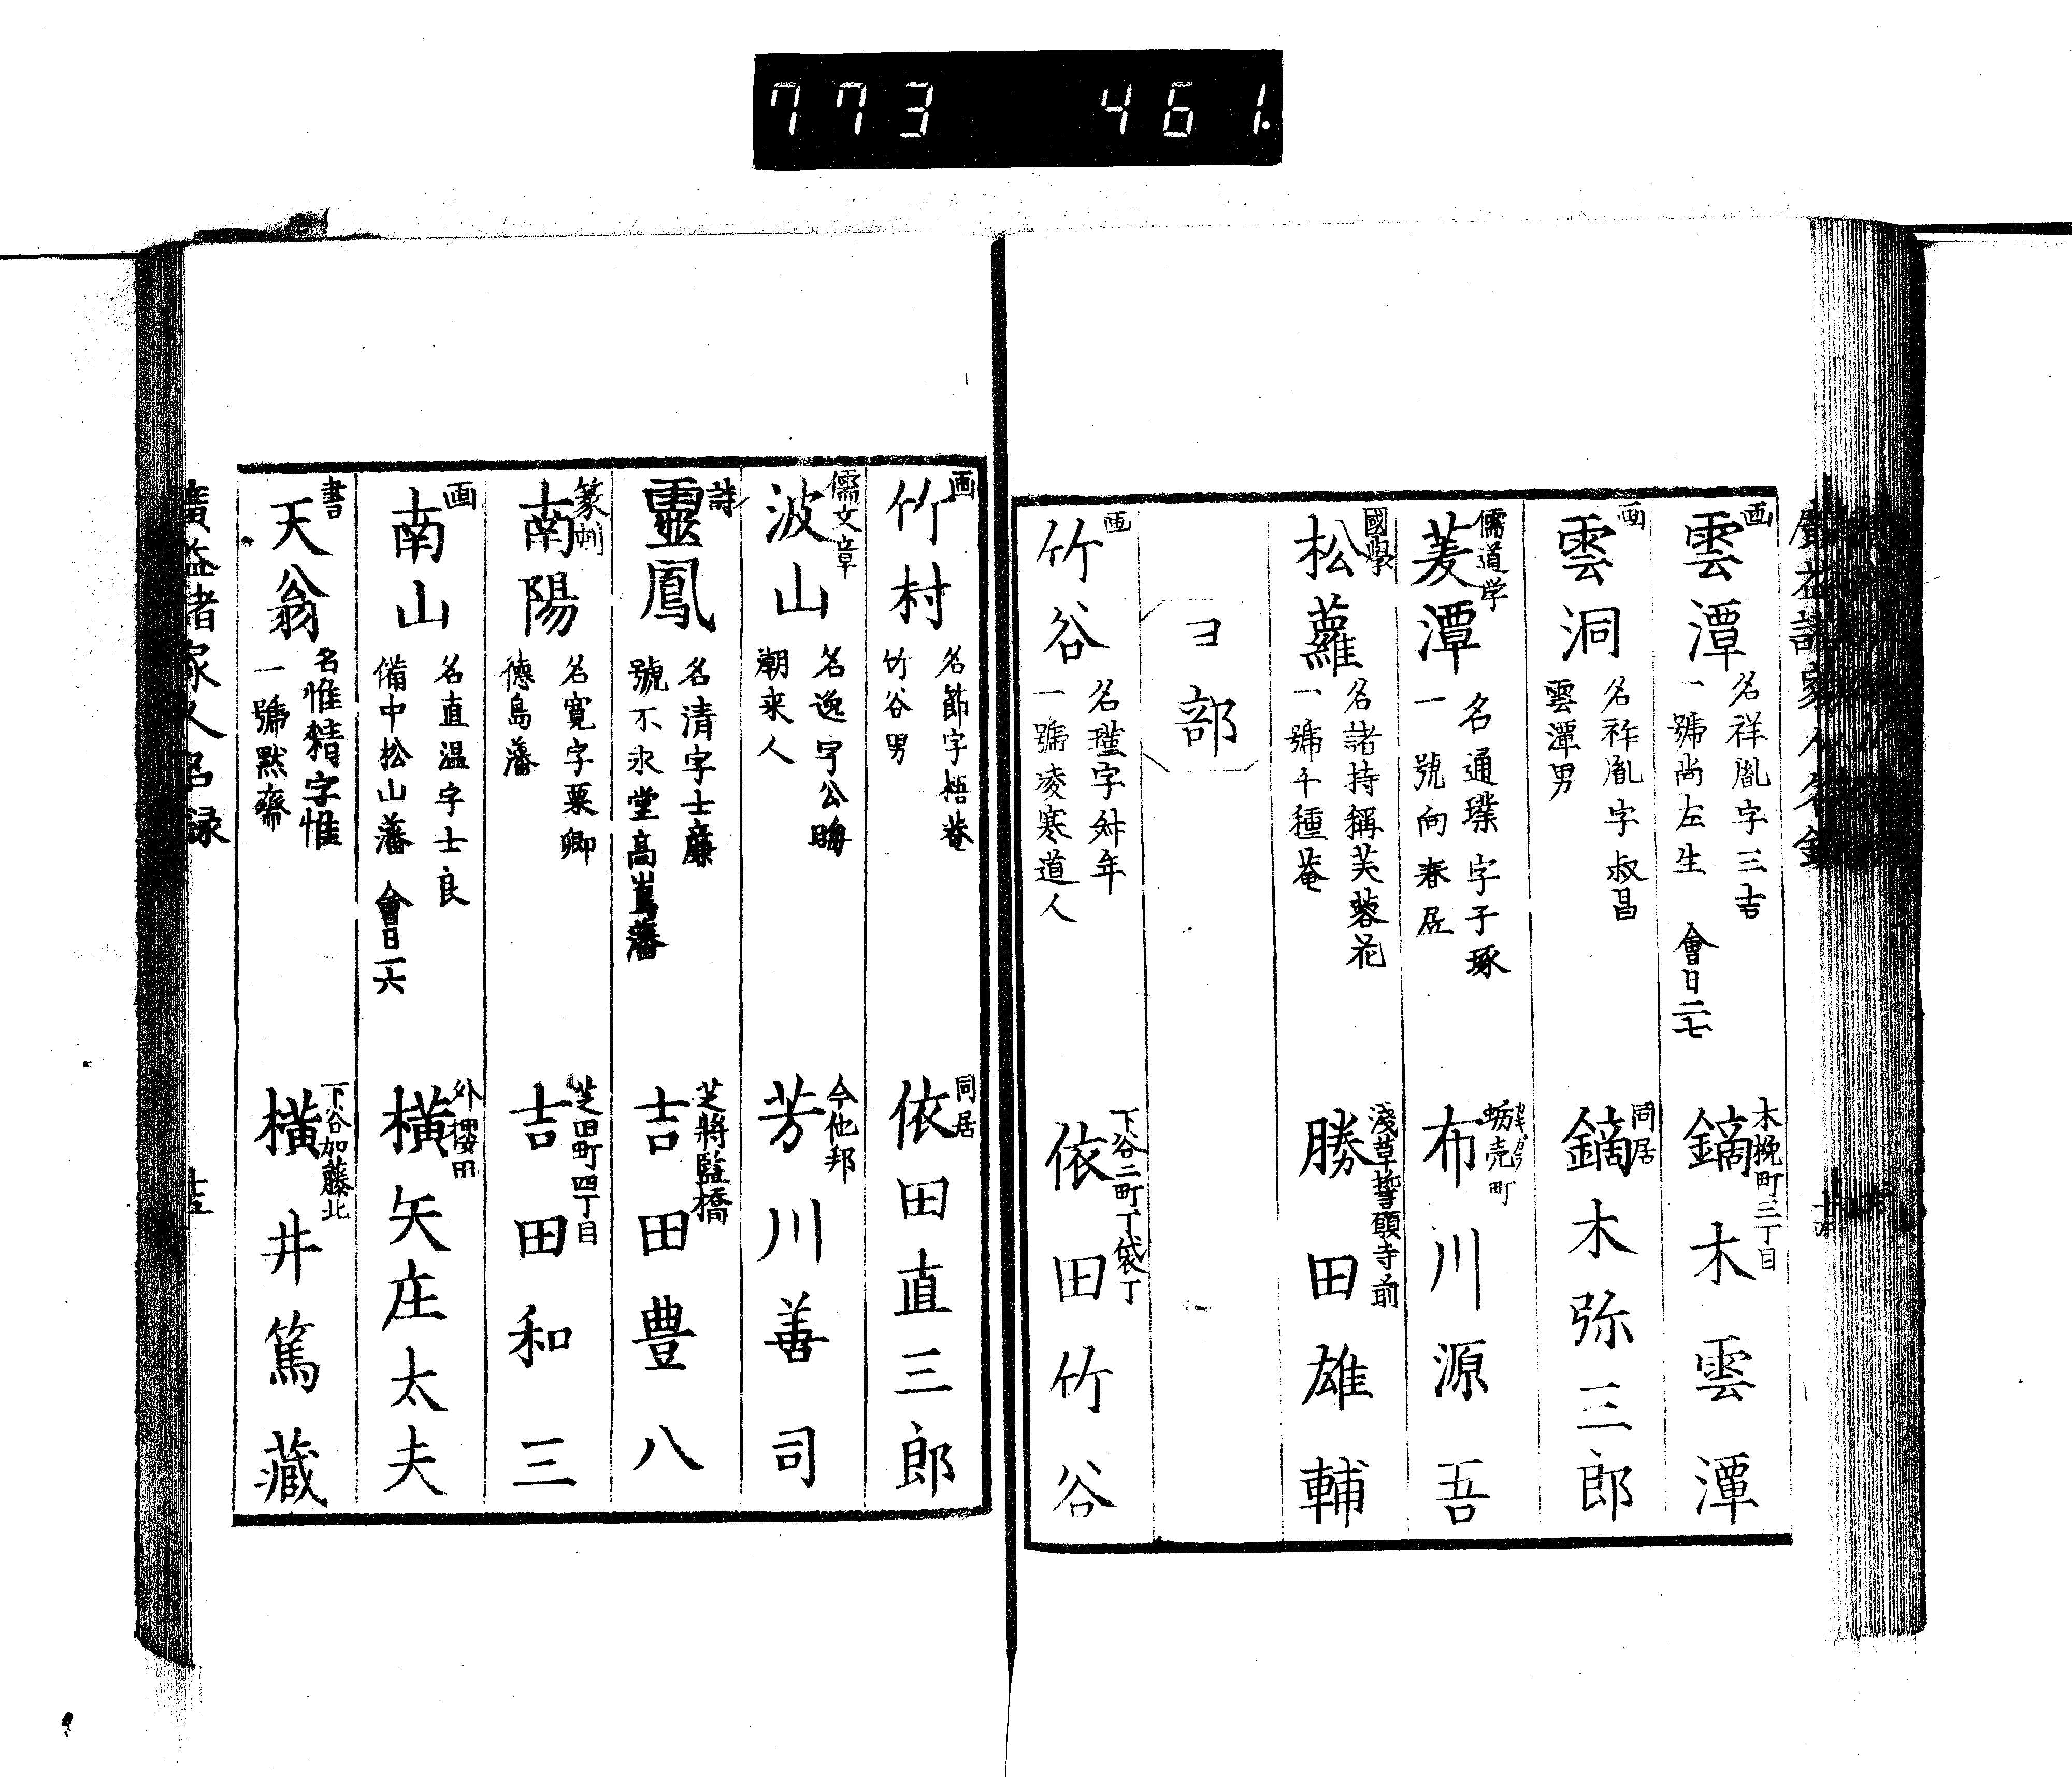 773 461.
画
雲潭
名祥胤字三吉
一號尚左生 會日二七
木挽町三丁目
鏑木雲潭
画
雲洞
名祚胤字叔昌
雲潭男
同居
鏑木弥三郎
儒道学
菱潭
名通璞字子琢
一號向春居
蛎壳町
カキガラ
布川源吾
國學
松蘿
名諸持稱芙蓉花
一號千種菴
淺草誓願寺前
勝田雄輔
ヨ部
画
竹谷
名瑾字叔年
一號凌寒道人
下谷二町丁袋丁
依田竹谷
画
竹村
名節字梧菴
竹谷男
同居
依田直三郎
儒文章
波山
名逸字公晦
潮来人
今他邦
芳川善司
詩
靈鳳
名清字士廉
號不求堂高嶌藩
芝將監橋
吉田豊八
篆刻
南陽
名寛字栗卿
德島藩
芝田町四丁目
吉田和三
画
南山
名直温字士良
備中松山藩 會日一六
外櫻田
横矢庄太夫
書
天翁
名惟精字惟
一號默齋
下谷加藤北
横井篤藏
廣益諸家人名録